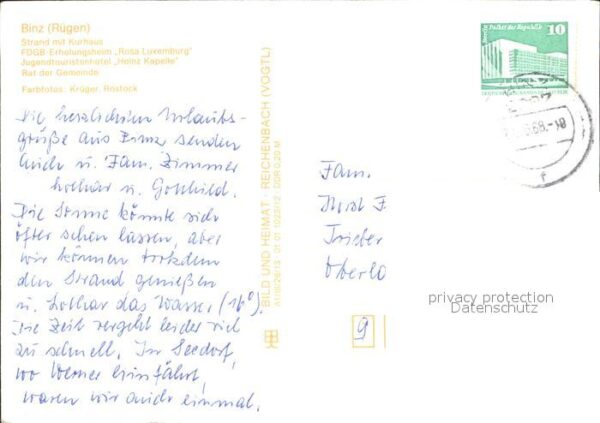 Binz (Rügen)
Strand mit Kurhaus
FDGB-Erholungsheim „Rosa Luxemburg"
Jugendtouristenhotel „Heinz Kapelle"
Rat der Gemeinde
Farbfotos: Krüger, Rostock
Die herzlichsten Urlaubs-
grüße aus Binz senden
Euch u. Fam. Zimmer
Lothar u. Gotthild.
Die Sonne könnte sich
öfter sehen lassen, aber
wir können trotzdem
den Strand genießen
u. Lothar das Wasser, (16°).
Die Zeit vergeht leider viel
zu schnell. In Seedorf,
wo Werner hinfährt,
waren wir auch einmal.
BILD UND HEIMAT · REICHENBACH (VOGTL)
DDR 0,20 M
Berlin, Palast der Republik
10
Fam.
Horst F.
Oberlo
privacy protection
Datenschutz